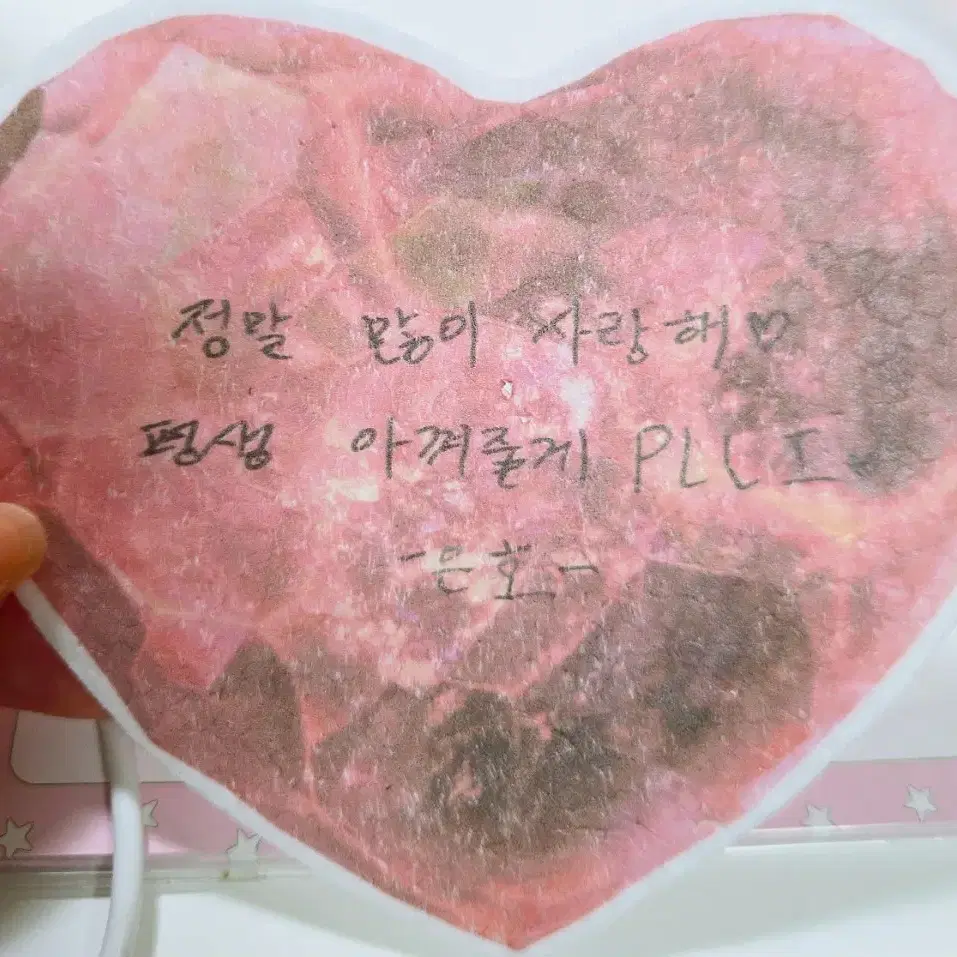 정말 많이 사랑해♡
평생 아껴줄게 PLLI
-은호-